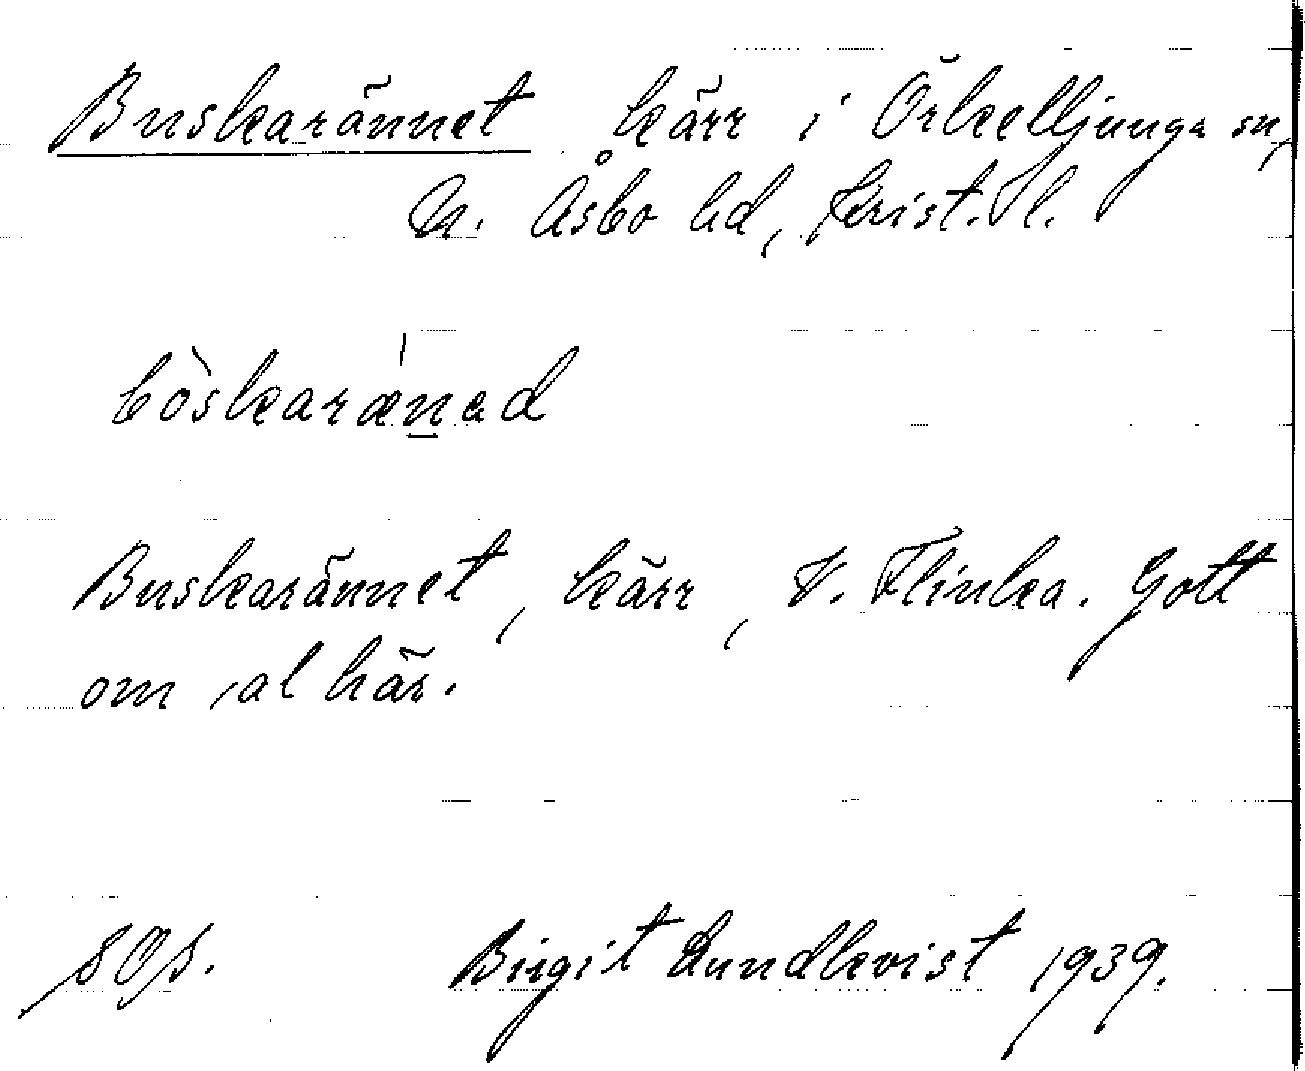 Buskarännet kärr i Örkelljunga sn,
N. Åsbo hd, Krist. l.
bòskaræ̍n̲ad
Buskarännet, kärr, V. Flinka. Gott
om al här.
Birgit Lundkvist 1939.